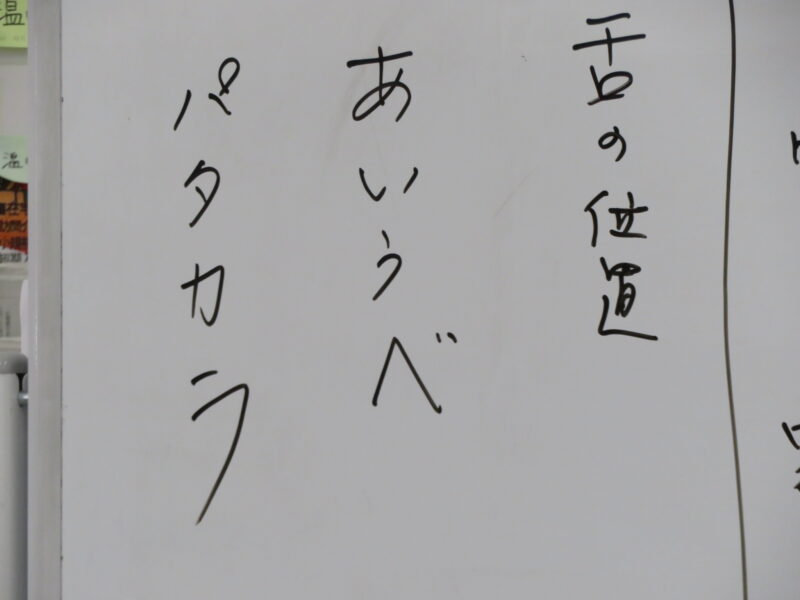 舌の位置
あいうべ
パタカラ